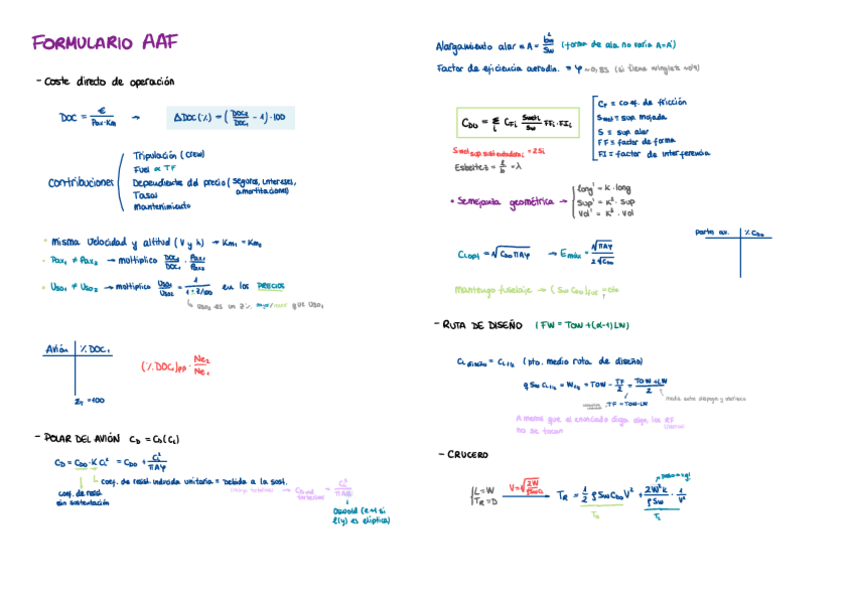 FORMULARIO AAF
- Coste directo de operación
DOC = € / Pax·Km → ΔDOC(%) = (DOC2/DOC1 - 1)·100
Contribuciones
Tripulación (crew)
Fuel ∝ TF
Dependiente del precio (seguros, intereses, amortizaciones)
Tasas
Mantenimiento
· misma velocidad y altitud (V y h) → Km1 = Km2
· Pax1 ≠ Pax2 → multiplico DOC2/DOC1 · Pax1/Pax2
· Uso1 ≠ Uso2 → multiplico Uso1/Uso2 = 1/(1±z/100) en los PRECIOS
↳ Uso2 es un z% mayor/menor que Uso1
Avión | % DOC1
(% DOC)pp · Ne2/Ne1
Σ = 100
- POLAR DEL AVIÓN CD = CD(CL)
CD = CD0 + K CL² = CD0 + CL²/πAφ
coef. de resist. inducida unitaria = debida a la sust.
coef. de resist. sin sustentación
CL²/πAe
Oswald (e=1 si l(y) es elíptica)
Alargamiento alar = A = bw²/Sw (forma de ala no varía A=A')
Factor de eficiencia aerodin. = φ ~0,85 (si tiene winglets)
CD0 = Σi CFi Sweti/Sw FFi·FIi
CF = coef. de fricción
Swet = sup mojada
S = sup alar
FF = factor de forma
FI = factor de interferencia
Swet sup sustentadora = 2Si
Esbeltez = = λ
· Semejanza geométrica →
long' = K·long
sup' = K²·sup
Vol' = K³·vol
Parte av. | % CD0
CLopt = √(CD0πAφ) → Emáx = √(πAφ)/2√CD0
Mantengo fuselaje → (Sw CD0)fus = cte
- RUTA DE DISEÑO (FW = TOW + (α-1) LW)
CL diseño = CL1/2 (pto. medio ruta de diseño)
q Sw CL1/2 = W1/2 = TOW - TF/2 = (TOW+LW)/2
TF = TOW-LW
media entre despegue y aterrizaje
A menos que el enunciado diga algo, las RF no se tocan
- CRUCERO
L = W
TR = D
V = √(2W/ρSwCL)
TR = 1/2 ρSwCD0V² + 2W²K/ρSw · 1/V²